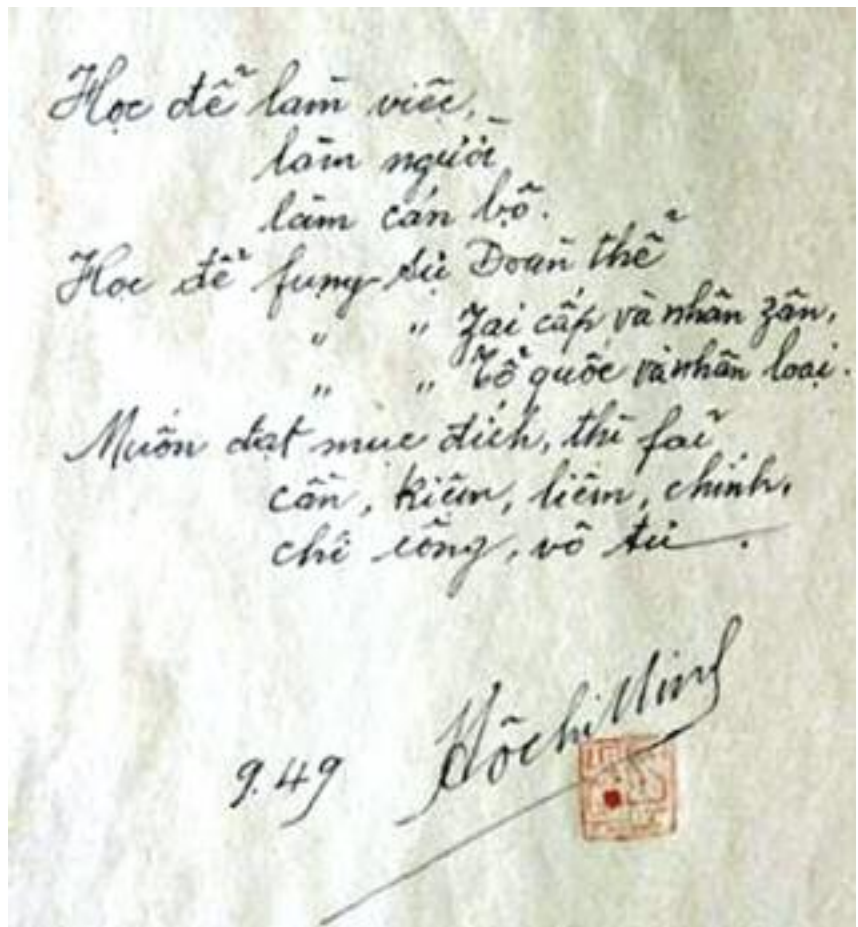 Học để làm việc,
làm người,
làm cán bộ.
Học để fụng sự Đoàn thể
" " Zai cấp và nhân zân,
" " Tổ quốc và nhân loại.
Muốn đạt mục đích, thì fải
cần, kiệm, liêm, chính,
chí công, vô tư.
9.49 Hồ chí Minh